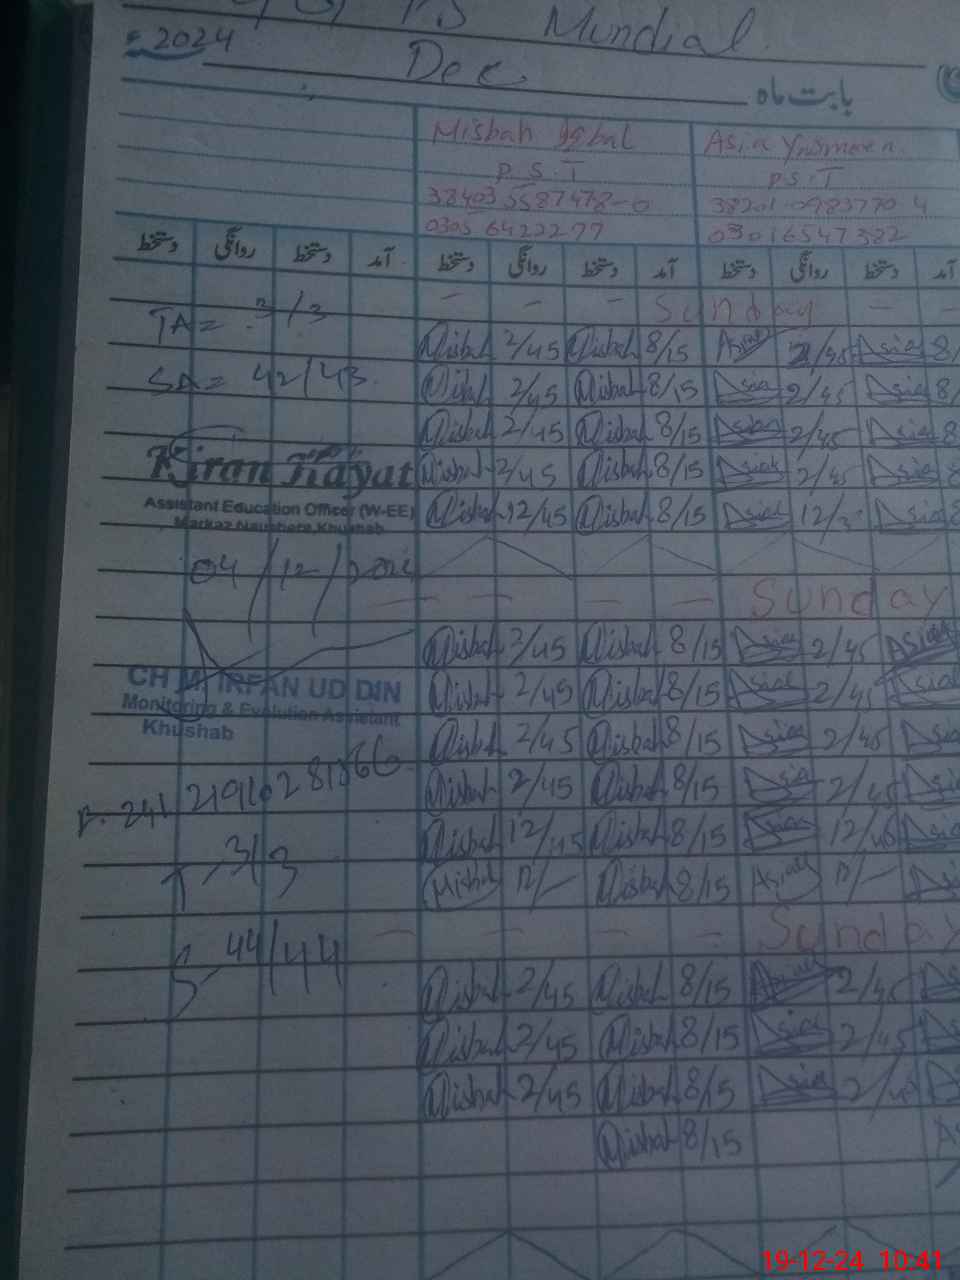 P.S Mundial
2024
Dec
بابت ماه
Misbah Iqbal Asia Yasmeen
P.S.T P.S.T
38403 5587478-0 38201-0983770 4
0305 6422277 03016547382
دستخط روانگی دستخط آمد دستخط روانگی دستخط آمد دستخط روانگی دستخط آمد
- - - Sunday - -
TA = 3/3 Misbah 2/45 Misbah 8/15 Asia 2/45 Asia 8/
SA = 42/43 Misbah 2/45 Misbah 8/15 Asia 2/45 Asia 8/
Misbah 2/45 Misbah 8/15 Asia 2/45 Asia 8
Kiran Hayat Misbah 2/45 Misbah 8/15 Asia 2/45 Asia 8
Assistant Education Officer (W-EE)
Markaz Naushera, Khushab
Misbah 12/45 Misbah 8/15 Asia 12/3 Asia 8
04/12/2024
- - - - Sunday
Misbah 2/45 Misbah 8/15 Asia 2/45 Asia
CH M IRFAN UD DIN Misbah 2/45 Misbah 8/15 Asia 2/45 Asia
Monitoring & Evolution Assistant
Khushab
Misbah 2/45 Misbah 8/15 Asia 2/45 Asia
Misbah 2/45 Misbah 8/15 Asia 2/45 Asia
Misbah 12/45 Misbah 8/15 Asia 12/45 Asia
T, 3/3 Misbah 12/- Misbah 8/15 Asia 12/-
- - - - Sunday
S- 44/44 Misbah 2/45 Misbah 8/15 Asia 2/45
Misbah 2/45 Misbah 8/15 Asia 2/45
Misbah 2/45 Misbah 8/15 Asia 2/45
Misbah 8/15
19-12-24 10:41